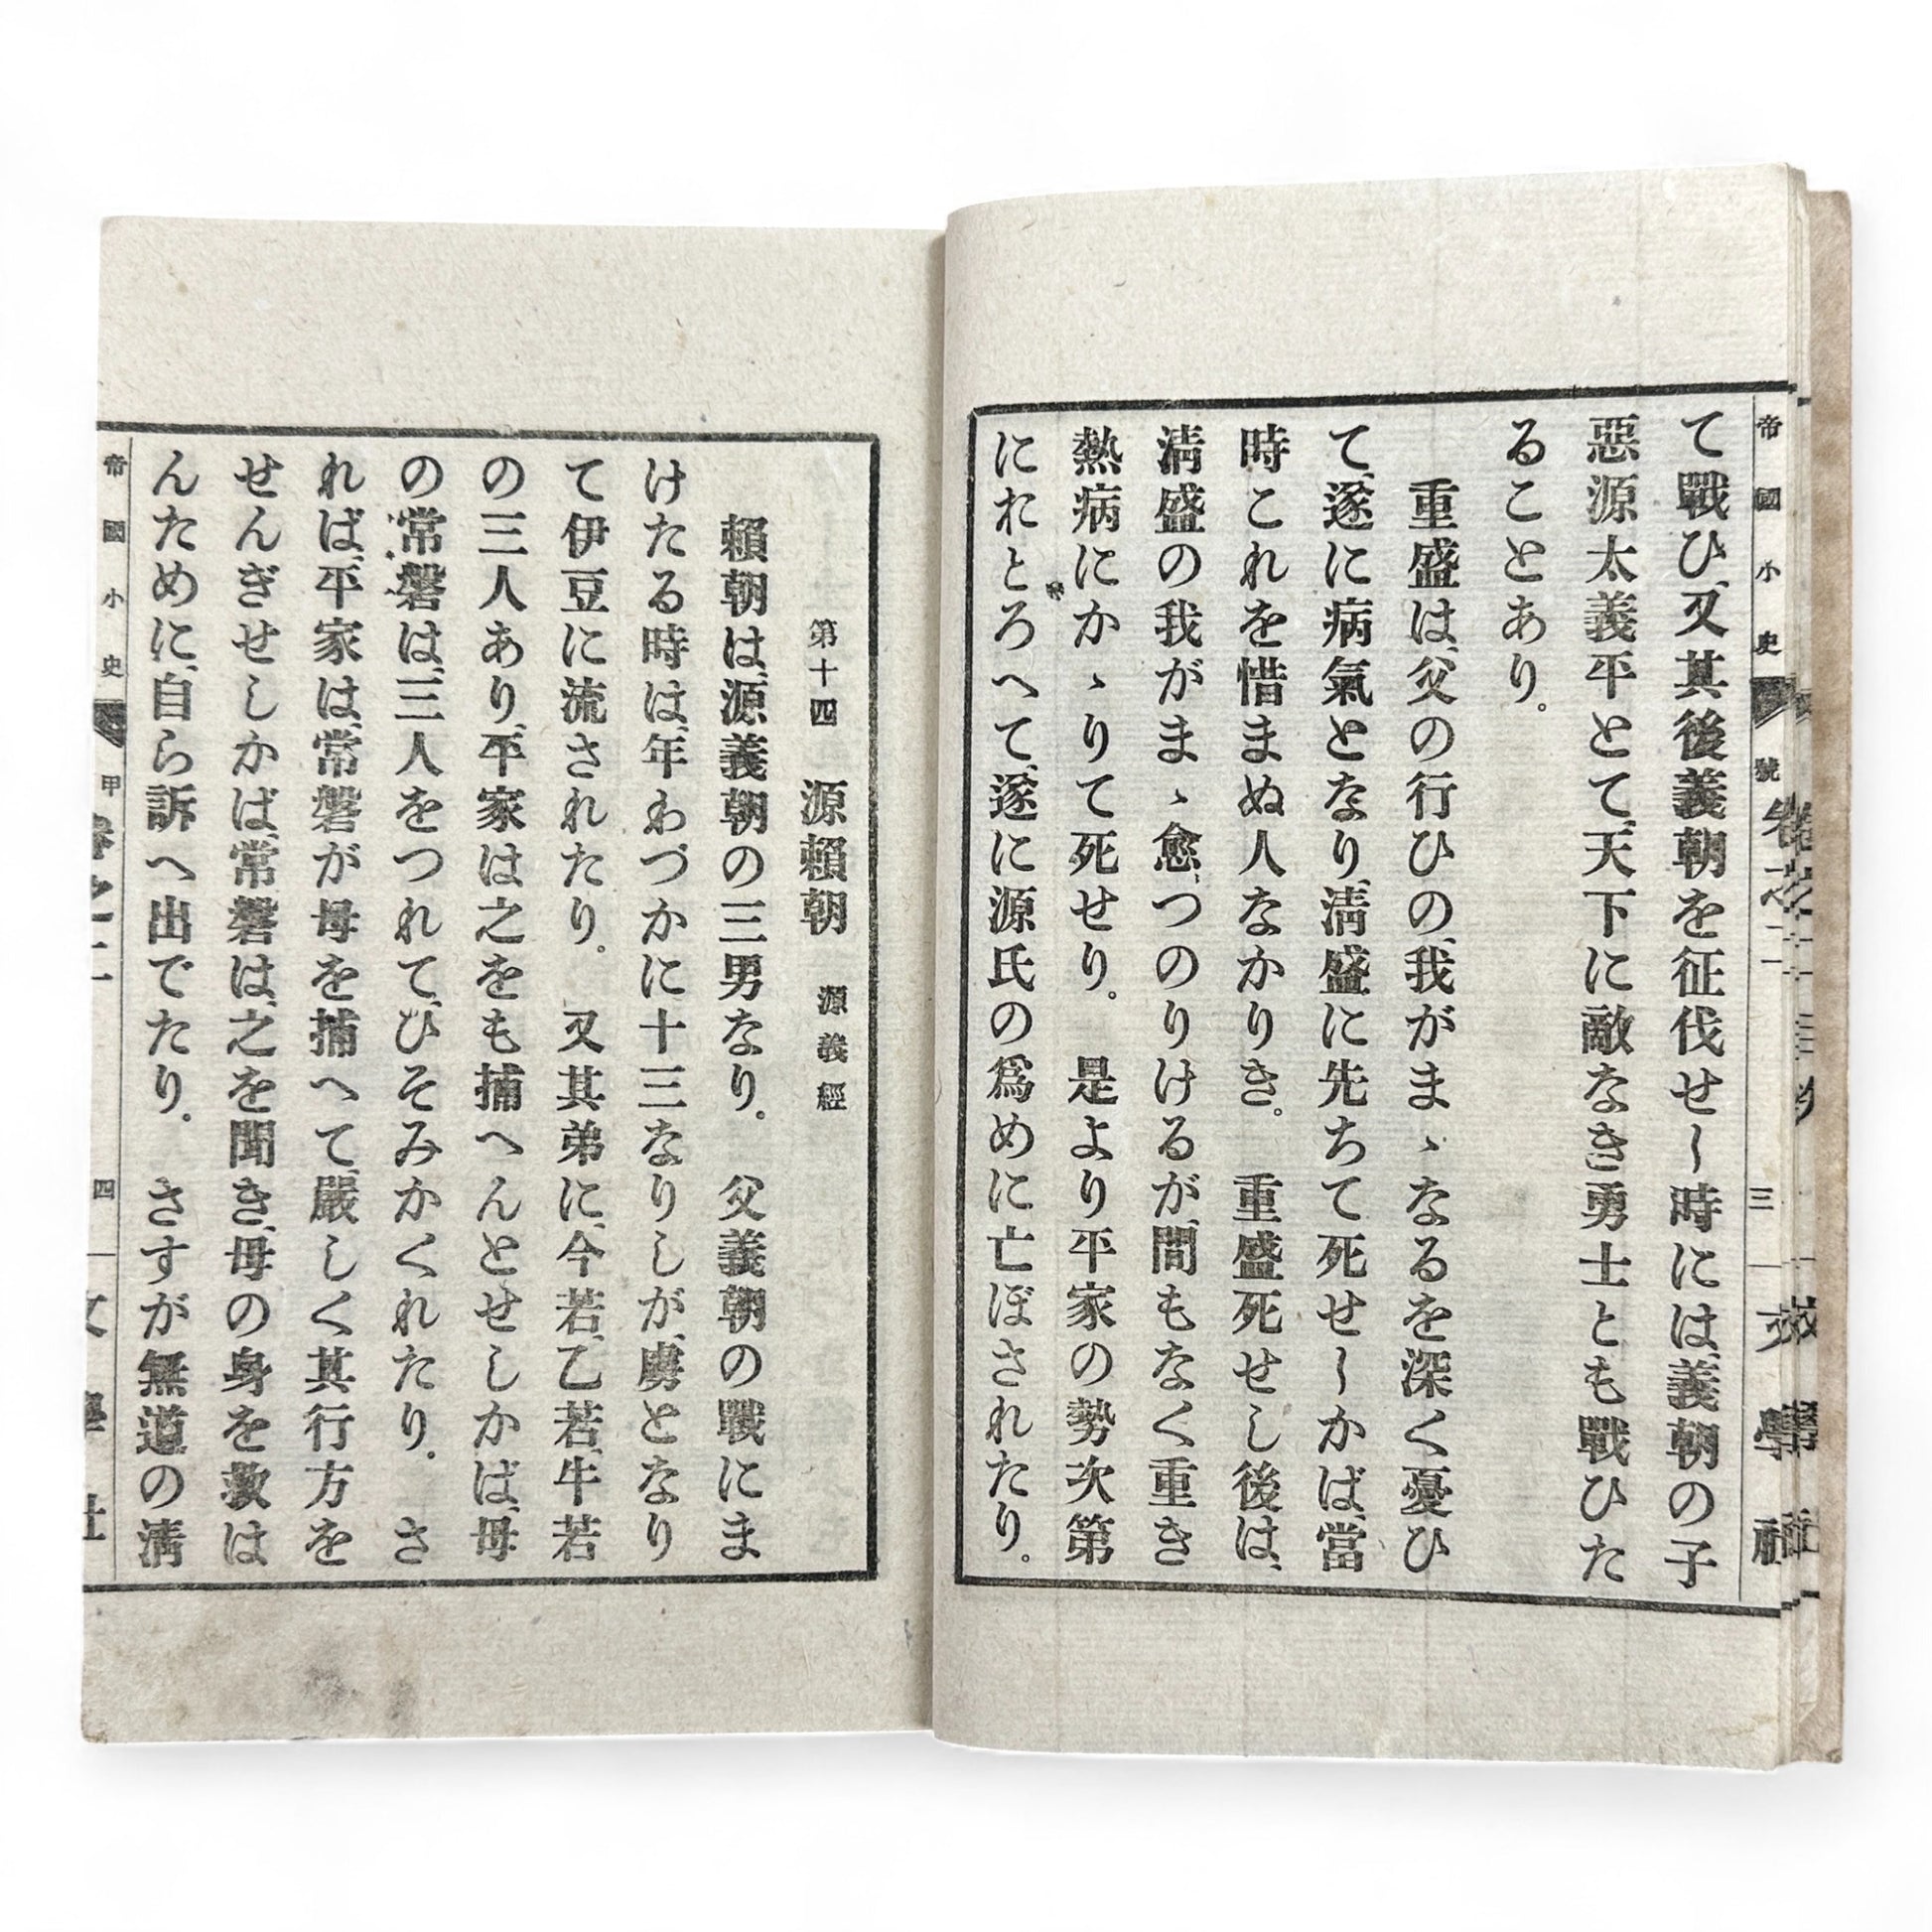 帝國小史 號卷之二 三 文學社
て戰ひ、又其後義朝を征伐せし時には、義朝の子
惡源太義平とて、天下に敵なき勇士とも戰ひた
ることあり。
重盛は、父の行ひの、我がまゝなるを深く憂ひ
て、遂に病氣となり、淸盛に先ちて死せしかば、當
時これを惜まぬ人なかりき。重盛死せし後は、
淸盛の我がまゝ愈、つのりけるが、間もなく重き
熱病にかゝりて死せり。是より平家の勢次第
にれとろへて、遂に源氏の爲めに亡ぼされたり。
第十四 源賴朝 源義經
賴朝は、源義朝の三男なり。父義朝の戰にま
けたる時は、年わづかに十三なりしが、虜となり
て伊豆に流されたり。又其弟に、今若、乙若、牛若
の三人あり、平家は之をも捕へんとせしかば、母
の常磐は、三人をつれて、ひそみかくれたり。さ
れば、平家は、常磐が母を捕へて、嚴しく其行方を
せんぎせしかば、常磐は、之を聞き、母の身を救は
んために、自ら訴へ出でたり。さすが無道の淸
帝國小史 甲 卷之二 四 文學社